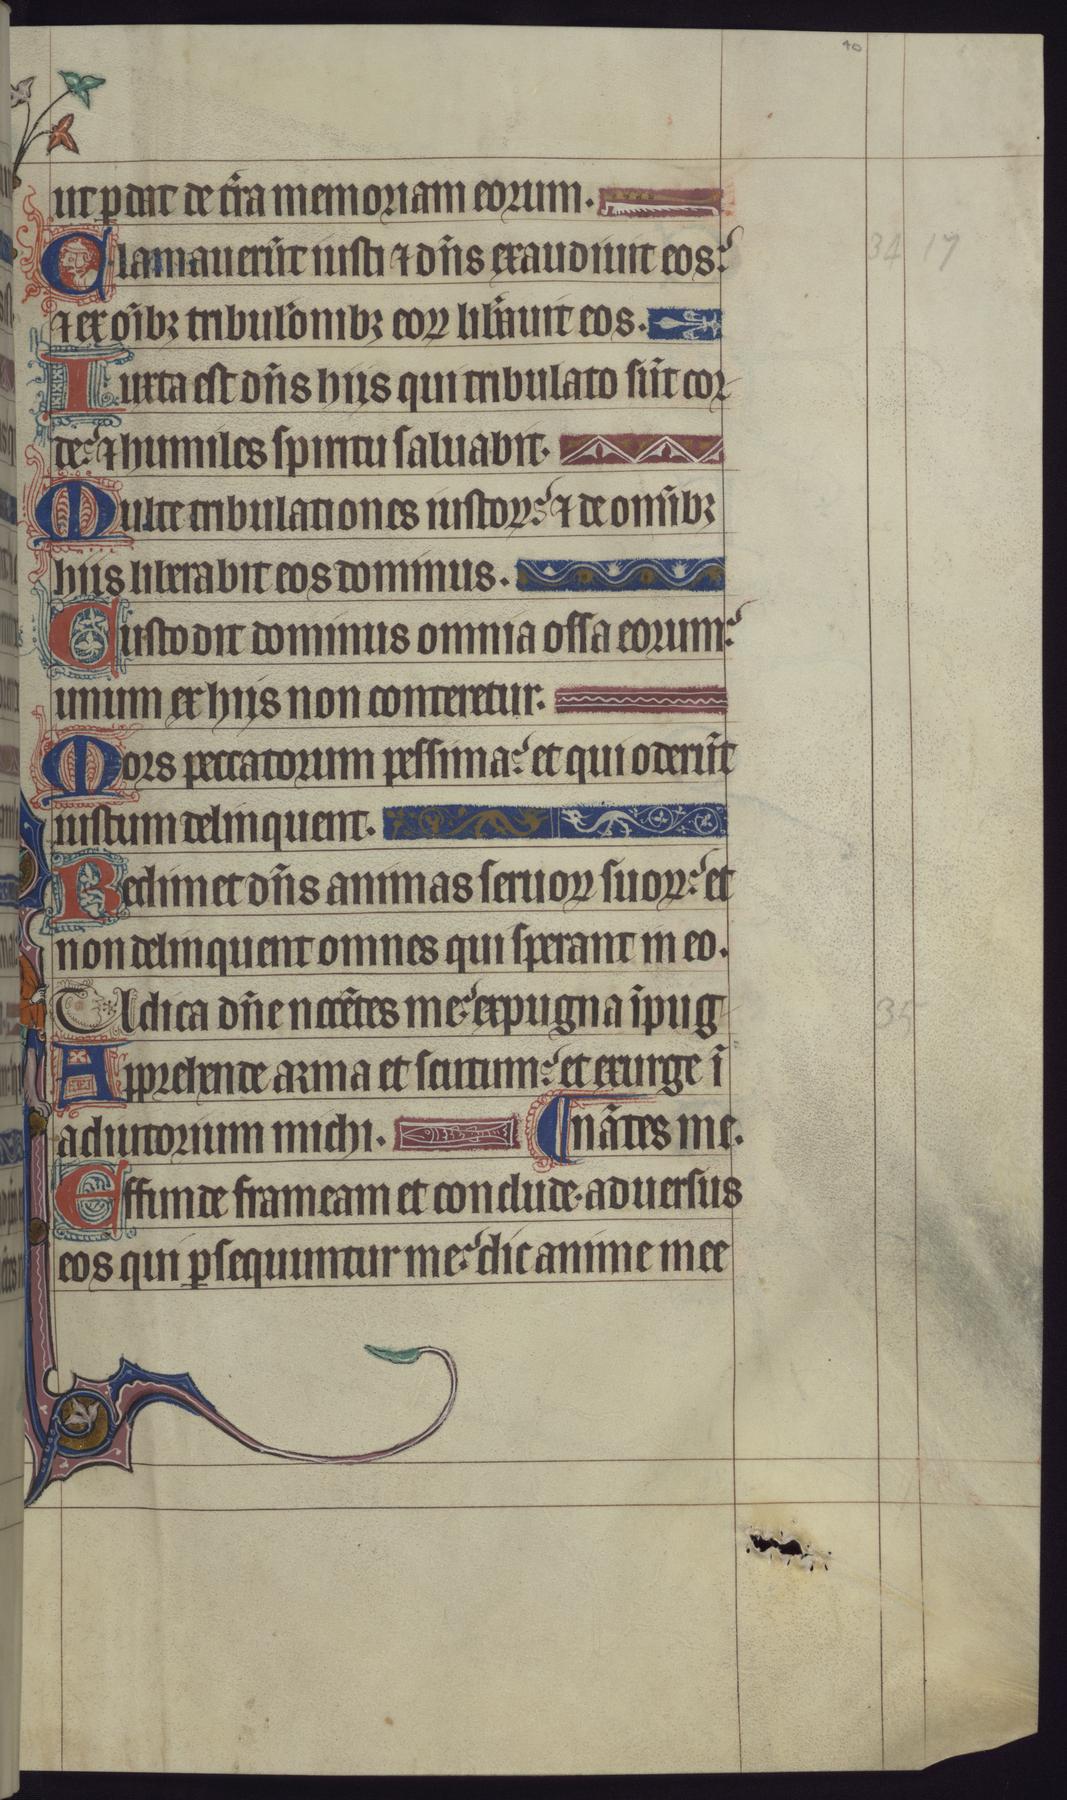 40
ut pdat de tr̄a memoriam eorum.
Clamauerūt iusti ⁊ dn̄s exaudiuit eos:
34 17
⁊ ex oībꝫ tribulōnibꝫ eoꝝ lib̄auit eos.
Iuxta est dn̄s hiis qui tribulato sūt cor
de: ⁊ humiles spiritu saluabit.
Multe tribulationes iustoꝝ: ⁊ de omībꝫ
hiis liberabit eos dominus.
Custodit dominus omnia ossa eorum:
unum ex hiis non conteretur.
Mors peccatorum pessima: et qui oderūt
iustum delinquent.
Redimet dn̄s animas seruoꝝ suoꝝ: et
non delinquent omnes qui sperant in eo.
Iudica dn̄e nocētes me: expugna īpug
35
Apprehende arma et scutum: et exurge ī
adiutorium michi. nātes me.
Effunde frameam et conclude. aduersus
eos qui ꝑsequuntur me: dic anime mee